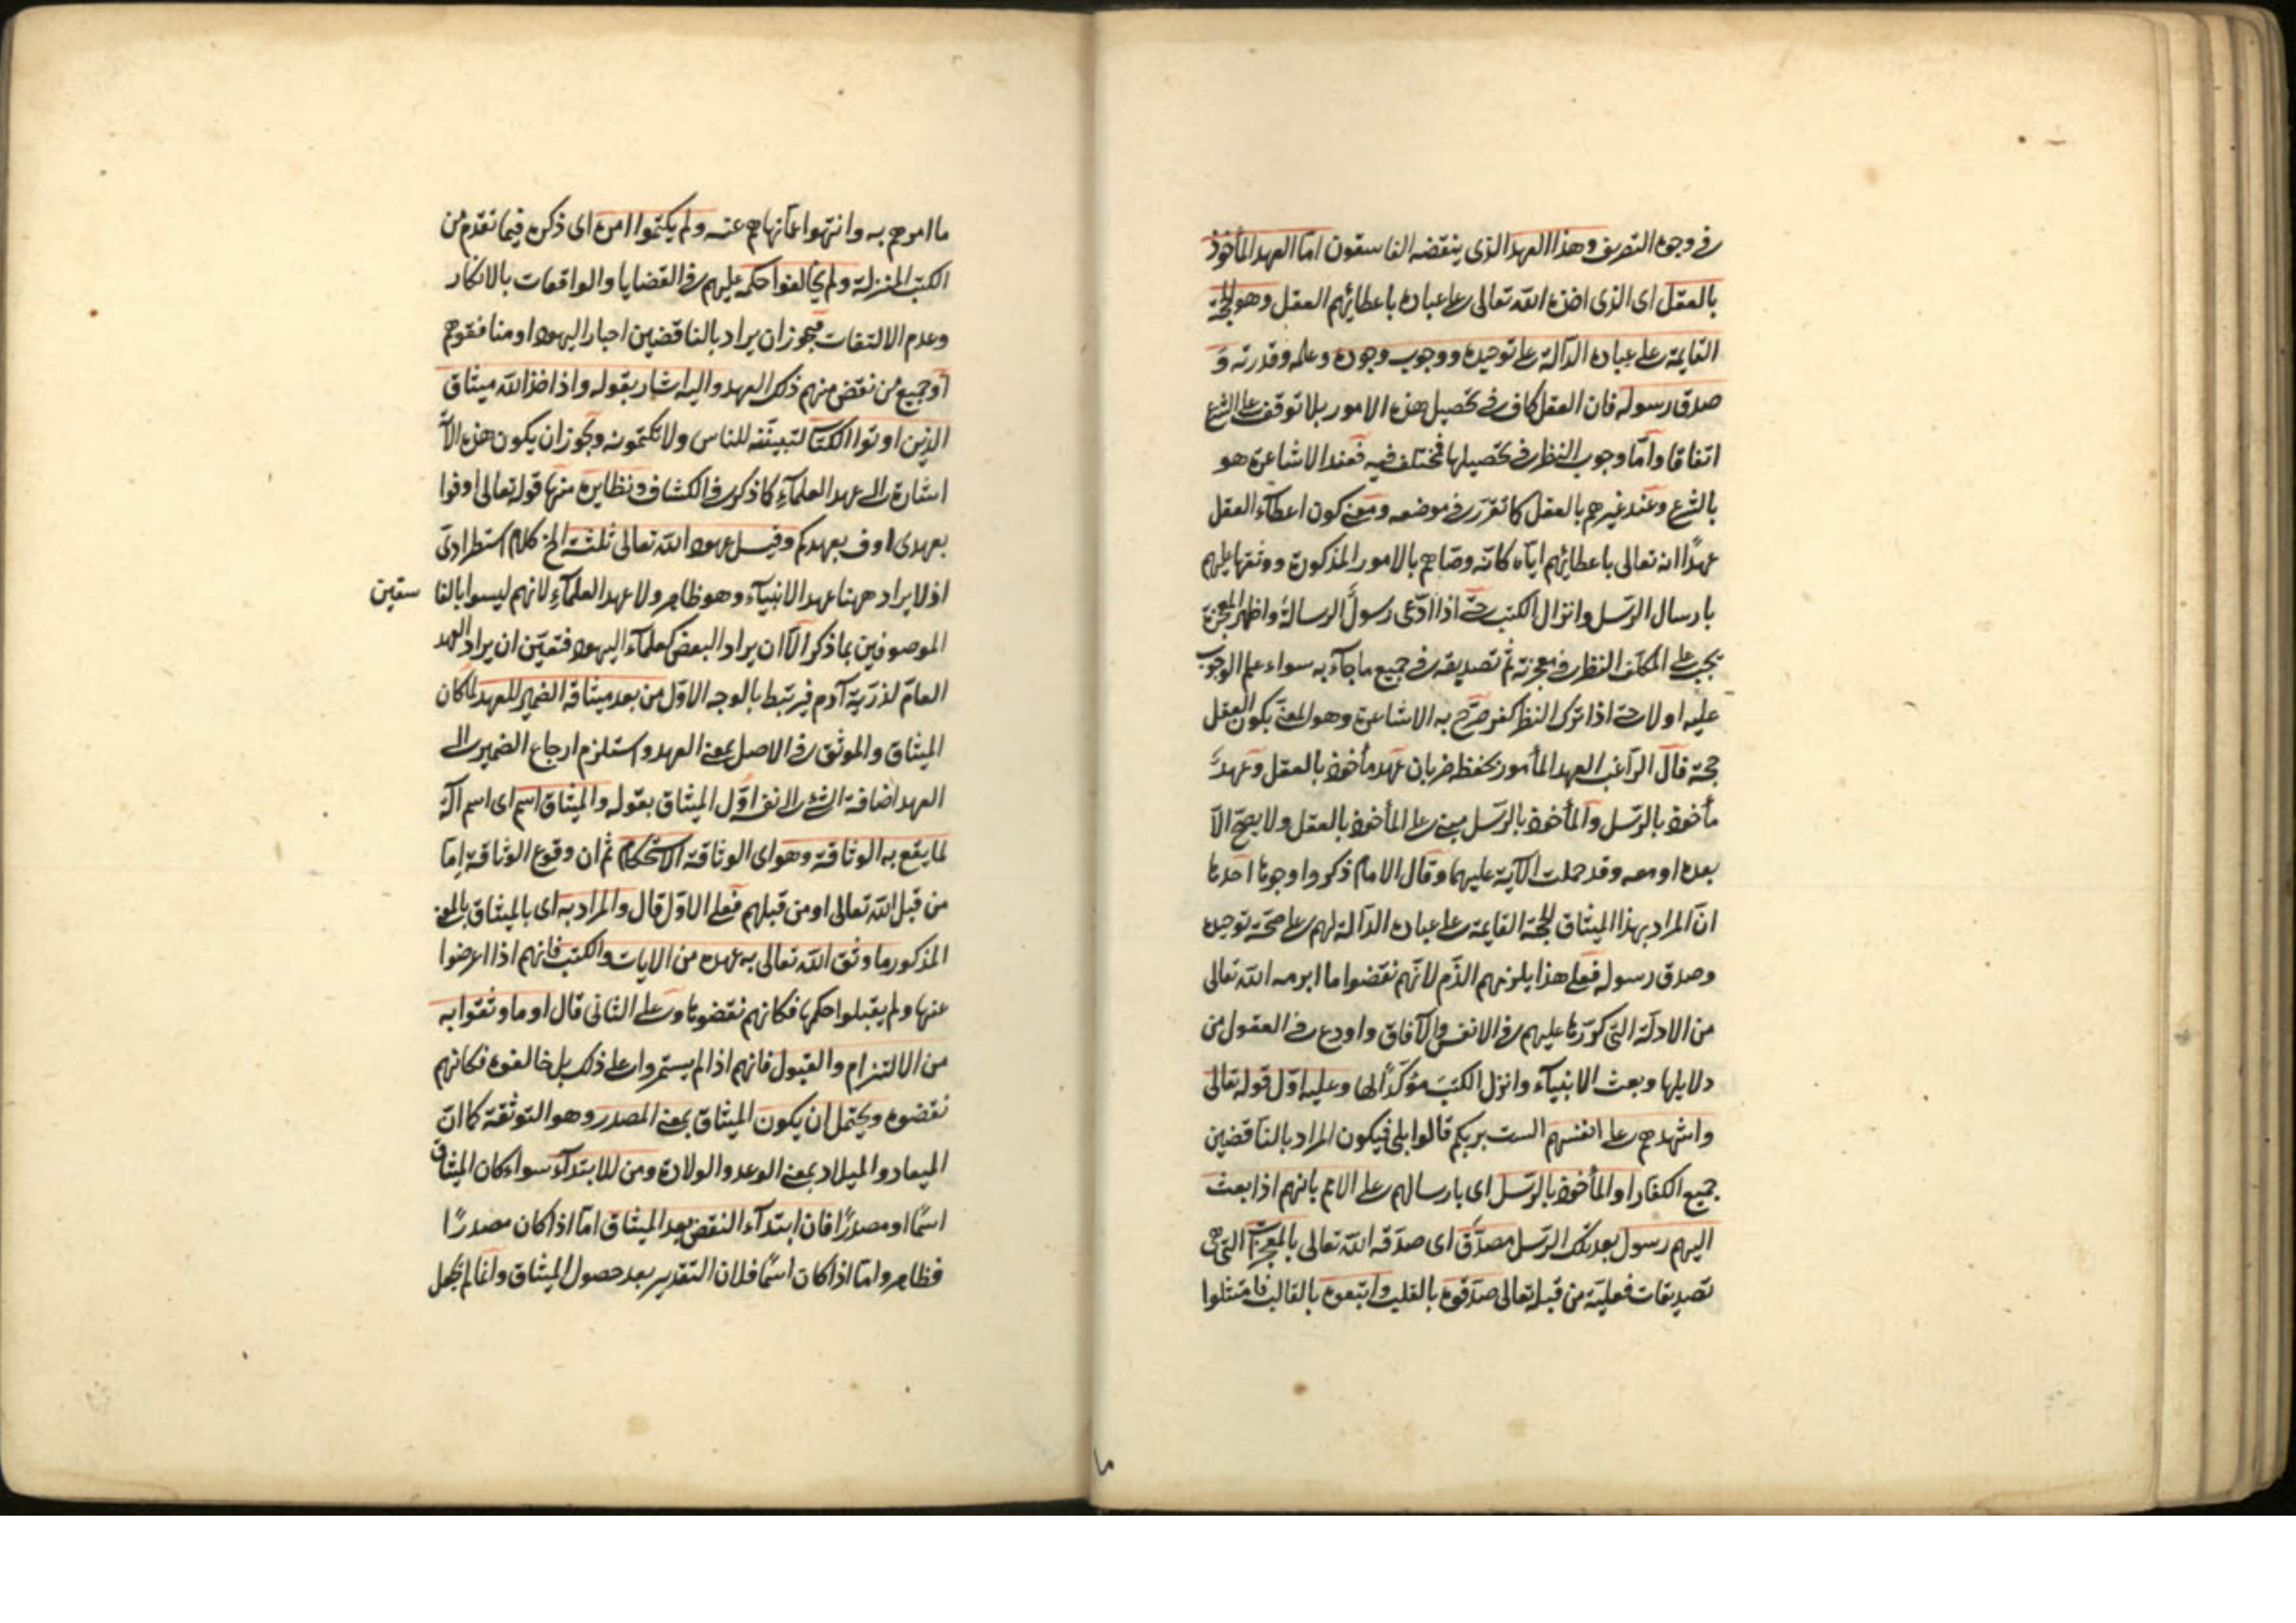 في وجوه التصريف وهذا العهد الذي ينقضه الفاسقون اما العهد المأخوذ
بالعقل اى الذى اخذه الله تعالى على عباده باعطائهم العقل وهو الحجة
القايمة على عباده الدالة على توحيده ووجوب وجوده وعلمه وقدرته و
صدق رسوله فان العقل كاف في تحصيل هذه الامور بلا توقف على الشرع
اتفاقا واما وجوب النظر في تحصيلها فمختلف فيه فعند الاشاعرة هو
بالشرع وعند غيرهم بالعقل كما تقرر في موضعه ومعنى كون اعطاء العقل
عهدًا انه تعالى باعطائهم اياه كانه وصاهم بالامور المذكورة ووثقها عليهم
بارسال الرسل وانزال الكتب حتى اذا ادعى رسولٌ الرسالة واظهر المعجزة
يجب على المكلف النظر في معجزته ثم تصديقه في جميع ما جاء به سواء علم الوجوب
عليه اولا حتى اذا ترك النظر كفر صرح به الاشاعرة وهو المعنى بكون العقل
حجة قال الراغب العهد المأمور بحفظه ضربان عهد مأخوذ بالعقل وعهد
مأخوذ بالرسل والمأخوذ بالرسل مبنى على المأخوذ بالعقل ولا يصح الا
بعده او معه وقد حملت الآية عليهما وقال الامام ذكروا وجوها احدها
ان المراد بهذا الميثاق الحجة القايمة على عباده الدالة لهم على صحة توحيده
وصدق رسوله فعلى هذا يلزمهم الذم لانهم نقضوا ما ابرمه الله تعالى
من الادلة التى كررها عليهم في الانفس والآفاق واودع في العقول من
دلايلها وبعث الانبياء وانزل الكتب مؤكدًا لها وعليه اول قوله تعالى
واشهدهم على انفسهم الست بربكم قالوا بلى فيكون المراد بالناقضين
جميع الكفار او المأخوذ بالرسل اى بارسالهم على الامم بانهم اذا بعث
اليهم رسول بعد تلك الرسل مصدق اى صدقه الله تعالى بالمعجزات التى هى
تصديقات فعلية من قبله تعالى صدقوه بالقلب واتبعوه بالقالب فامتثلوا
ما امرهم به وانتهوا عما نهاهم عنه ولم يكتموا امره اى ذكره فيما تقدم من
الكتب المنزلة ولم يخالفوا حكمه عليهم في القضايا والواقعات بالانكار
وعدم الالتفات فيجوز ان يراد بالناقضين احبار اليهود او منافقوهم
او جميع من نقض منهم ذلك العهد واليه اشار بقوله واذ اخذ الله ميثاق
الذين اوتوا الكتاب لتبيننه للناس ولا تكتمونه ويجوز ان يكون هذه الآ
اشارة الى عهد العلماء كما ذكره في الكشاف ونظايره منها قوله تعالى اوفوا
بعهدى اوف بعهدكم وقيل عهود الله تعالى ثلثة الخ كلام استطرادى
اذ لا يراد ههنا عهد الانبياء وهو ظاهر ولا عهد العلماء لانهم ليسوا بالفا سقين
الموصوفين بما ذكر الا ان يراد البعض كعلماء اليهود فتعين ان يراد العهد
العام لذرية آدم فيرتبط بالوجه الاول من بعد ميثاقه الضمير للعهد لما كان
الميثاق والموثق في الاصل بمعنى العهد واستلزم ارجاع الضمير الى
العهد اضافة الشئ الى نفسه اول الميثاق بقوله والميثاق اسم اى اسم آلة
لما يقع به الوثاقة وهو اى الوثاقة الاستحكام ثم ان وقوع الوثاقة اما
من قبل الله تعالى او من قبلهم فعلى الاول قال والمراد به اى بالميثاق بالمعنى
المذكور ما وثق الله تعالى به عهده من الايات والكتب فانهم اذا اعرضوا
عنها ولم يقبلوا حكمها فكانهم نقضوها وعلى الثانى قال او ما وثقوا به
من الالتزام والقبول فانهم اذا لم يستمروا على ذلك بل خالفوه فكانهم
نقضوه ويحتمل ان يكون الميثاق بمعنى المصدر وهو التوثقة كما ان
الميعاد والميلاد بمعنى الوعد والولادة ومن للابتداء سواء كان الميثاق
اسمًا او مصدرًا فان ابتداء النقض بعد الميثاق اما اذا كان مصدرًا
فظاهر واما اذا كان اسمًا فلان التقدير بعد حصول الميثاق وانما لم يجعل